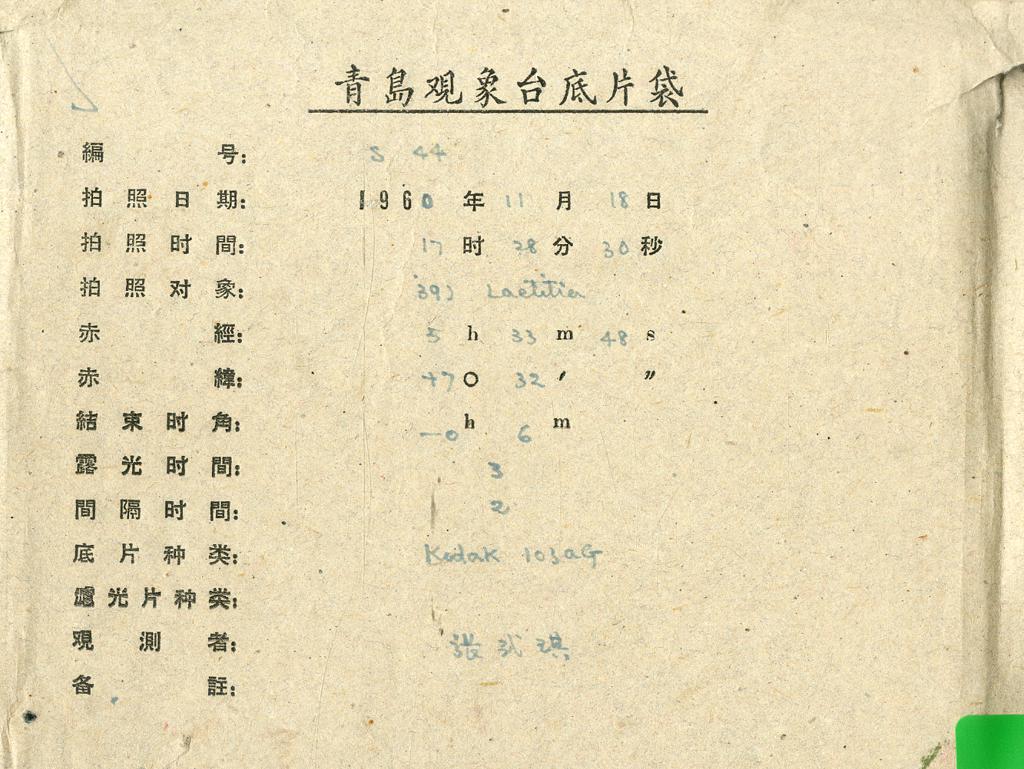 青島观象台底片袋
編 号: S 44
拍照日期: 1960年11月18日
拍照时間: 17时28分30秒
拍照对象: 39) Laetitia
赤經: 5 h 33 m 48 s
赤緯: +7○ 32′ ″
結束时角: -0 h 6 m
露光时間: 3
間隔时間: 2
底片种类: Kodak 103aG
濾光片种类:
观測者: 張武琪
备註: